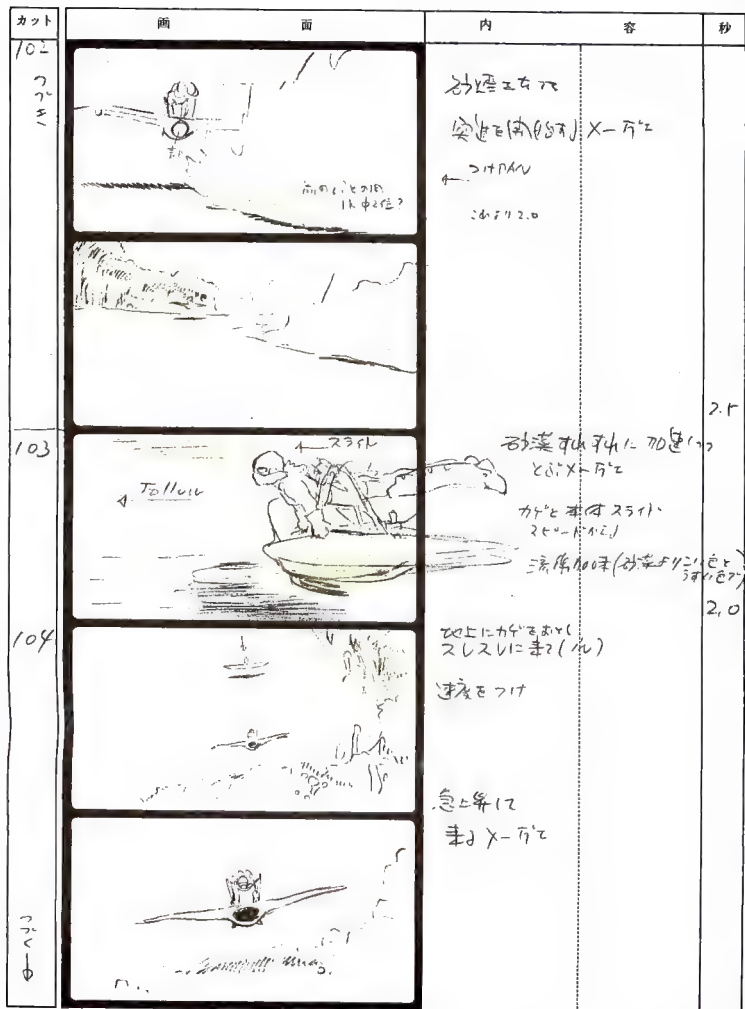 カット 画面 内容 秒
102
つづき
砂煙立てて
突進を開始する メーヴェ
つけPAN
これより2.0
2.5
103
スライド
Follow
砂漠すれすれに加速しつつ
とぶメーヴェ
カゲと車体スライド
スピードから
流線加味(砂漠よりこい色と
うすい色で)
2.0
104
地上にカゲをおとし
スレスレに来て(ル)
速度をつけ
急上昇して
来るメーヴェ
つづく